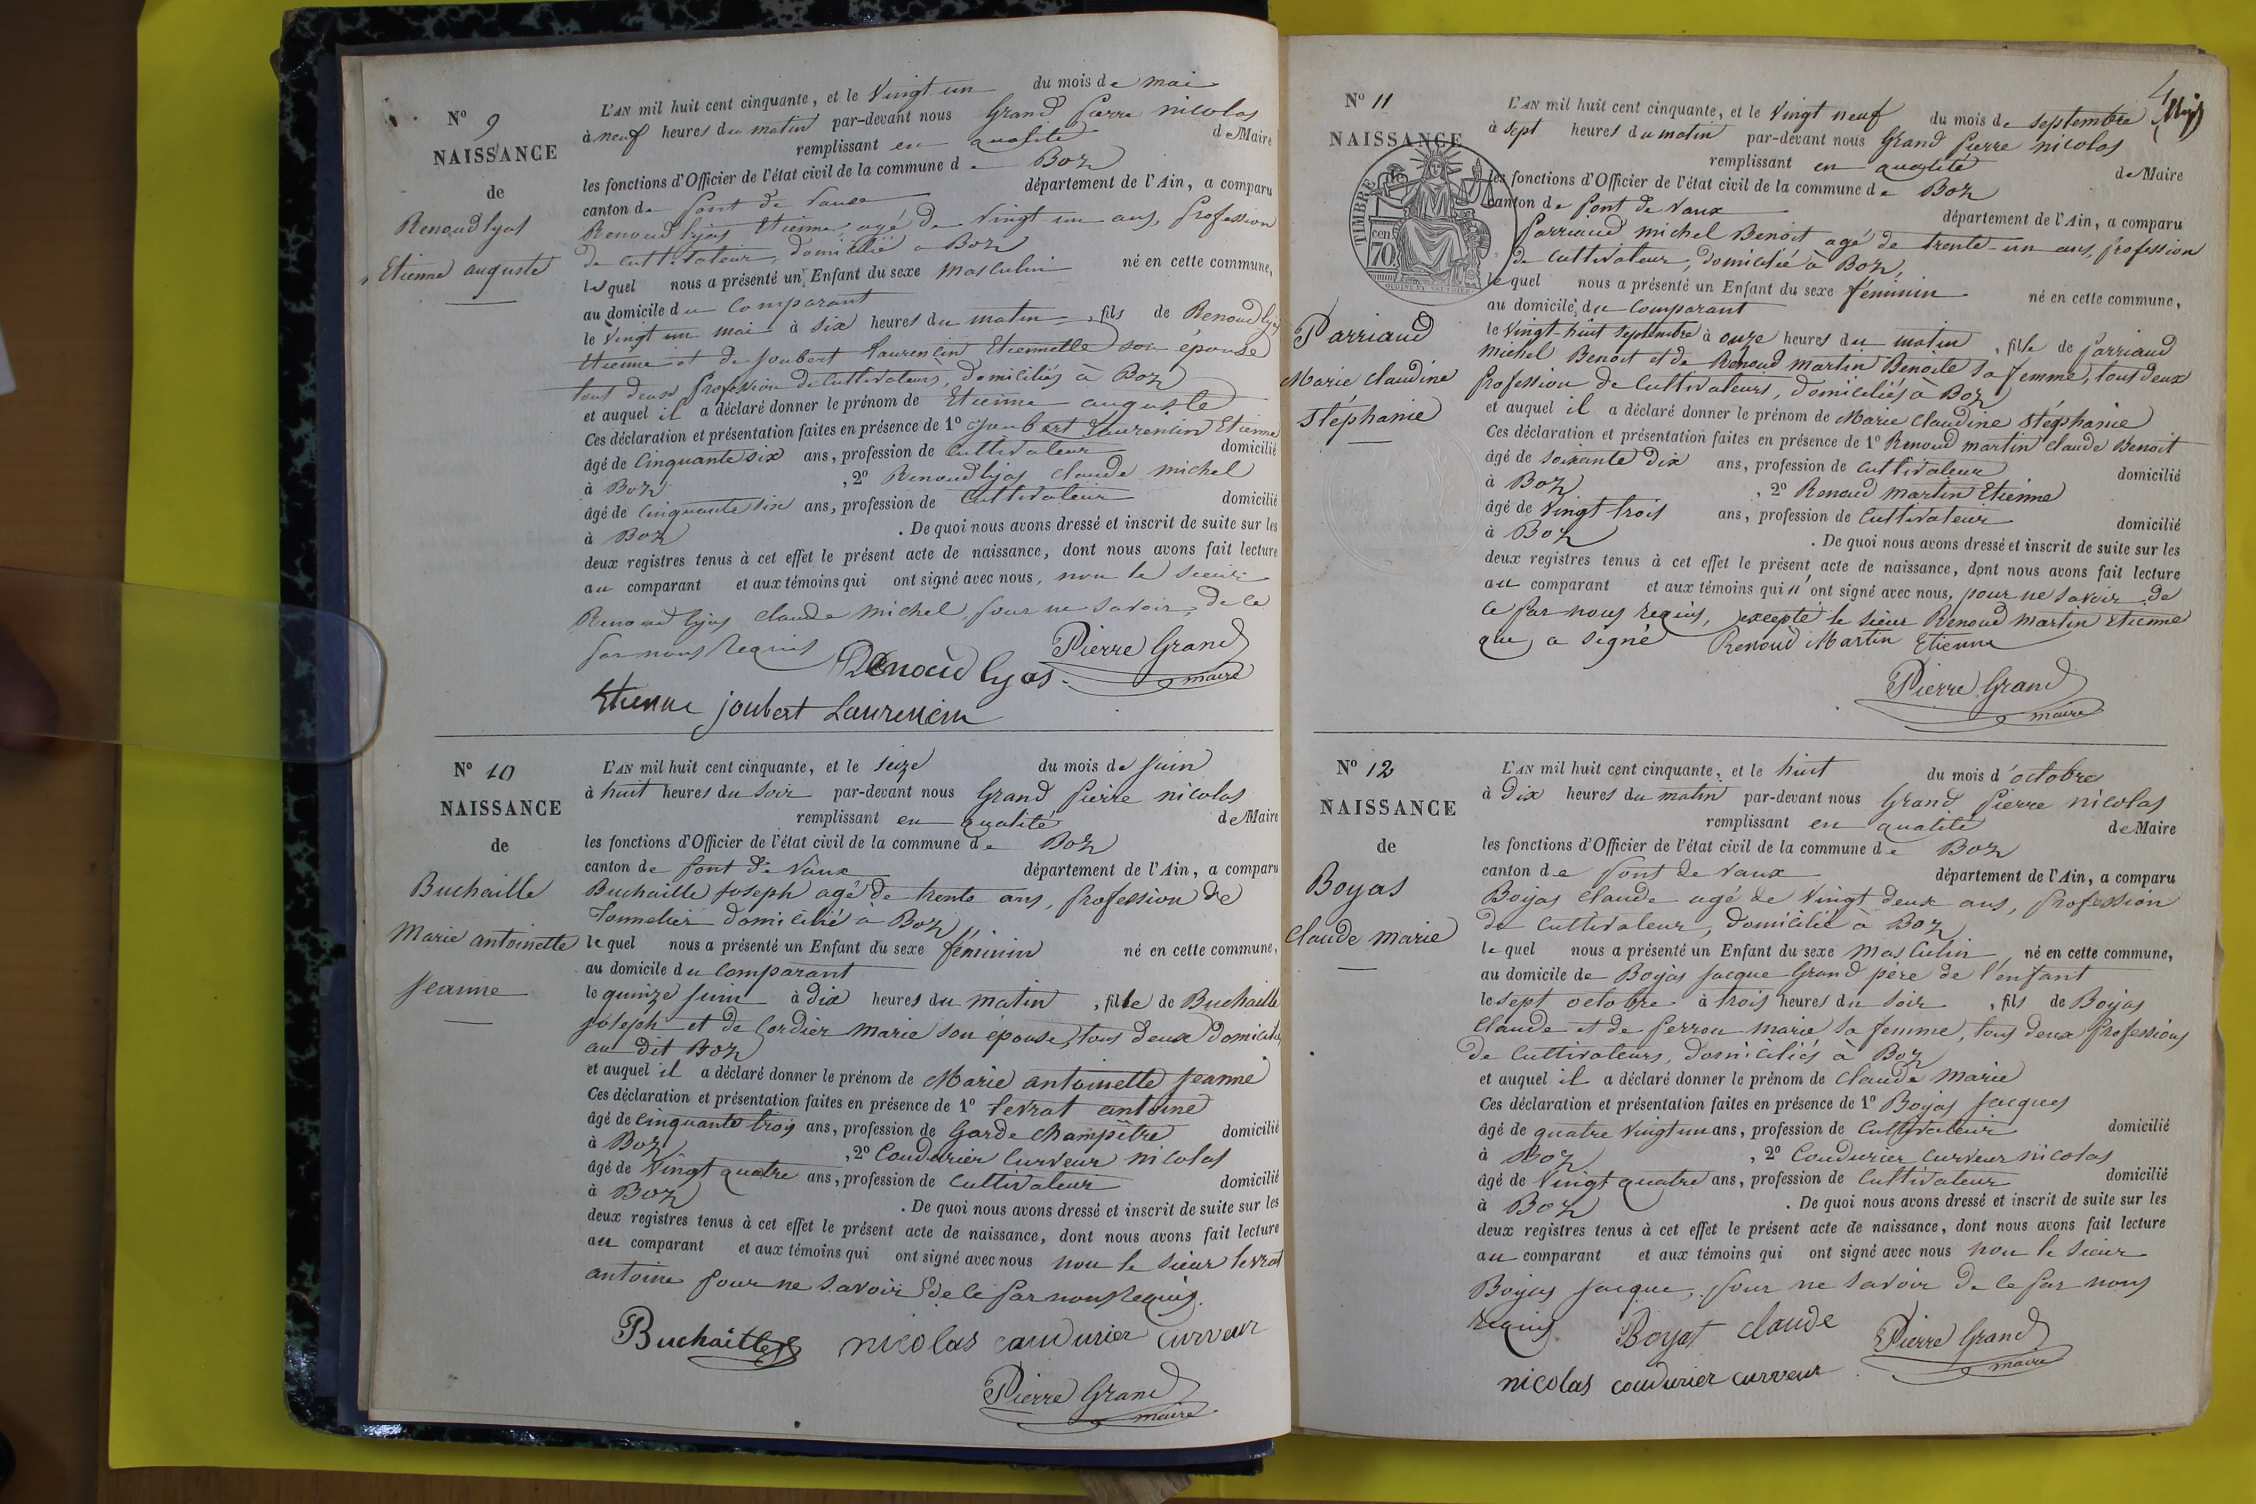 N° 9
NAISSANCE
de
Renoud lyas
Etienne auguste
L'AN mil huit cent cinquante, et le Vingt un du mois de mai
à neuf heures du matin par-devant nous Grand Pierre nicolas
remplissant en qualité de Maire
les fonctions d'Officier de l'état civil de la commune de Boz
canton de Pont de Vaux département de l'Ain, a comparu
Renoud lyas Etienne, agé de Vingt un ans, Profession
de cultivateur, domicilié à Boz
lequel nous a présenté un Enfant du sexe Masculin né en cette commune,
au domicile du Comparant
le Vingt un mai à six heures du matin, fils de Renoud lyas
Etienne et de Joubert Laurencin Etiennette son épouse
tout deux Profession de Cultivateurs, domiciliés à Boz
et auquel il a déclaré donner le prénom de Etienne auguste
Ces déclaration et présentation faites en présence de 1° Joubert Laurencin Etienne
âgé de Cinquante six ans, profession de Cultivateur domicilié
à Boz, 2° Renoud lyas Claude michel
âgé de Cinquante six ans, profession de Cultivateur domicilié
à Boz. De quoi nous avons dressé et inscrit de suite sur les
deux registres tenus à cet effet le présent acte de naissance, dont nous avons fait lecture
au comparant et aux témoins qui ont signé avec nous, non le sieur
Renoud lyas Claude Michel, Pour ne savoir, de ce
Par nous Requis
Renoud lyas Pierre Grand
maire
Etienne joubert Laurencin
N° 10
NAISSANCE
de
Buchaille
Marie antoinette
Jeanne
L'AN mil huit cent cinquante, et le Seize du mois de Juin
à huit heures du Soir par-devant nous Grand Pierre nicolas
remplissant en qualité de Maire
les fonctions d'Officier de l'état civil de la commune de Boz
canton de Pont de Vaux département de l'Ain, a comparu
Buchaille Joseph agé de trente ans, Profession de
Tonnelier domicilié à Boz
lequel nous a présenté un Enfant du sexe féminin né en cette commune,
au domicile du Comparant
le quinze Juin à dix heures du matin, fille de Buchaille
Joseph et de Cordier Marie son épouse, tous deux domiciliés
au dit Boz
et auquel il a déclaré donner le prénom de Marie antoinette Jeanne
Ces déclaration et présentation faites en présence de 1° Levrat antoine
âgé de Cinquante trois ans, profession de Garde Champêtre domicilié
à Boz, 2° Coudurier Curveur nicolas
âgé de Vingt quatre ans, profession de Cultivateur domicilié
à Boz. De quoi nous avons dressé et inscrit de suite sur les
deux registres tenus à cet effet le présent acte de naissance, dont nous avons fait lecture
au comparant et aux témoins qui ont signé avec nous non le sieur Levrat
antoine Pour ne savoir de ce Par nous Requis.
Buchaille nicolas coudurier curveur
Pierre Grand
maire
4
N° 11
NAISSANCE
TIMBRE
cen 70
Parriaud
Marie Claudine
Stéphanie
L'AN mil huit cent cinquante, et le Vingt neuf du mois de Septembre
à Sept heures du matin par-devant nous Grand Pierre nicolas
remplissant en qualité de Maire
les fonctions d'Officier de l'état civil de la commune de Boz
canton de Pont de Vaux département de l'Ain, a comparu
Parriaud Michel Benoit agé de trente-un ans, Profession
de Cultivateur, domicilié à Boz,
lequel nous a présenté un Enfant du sexe féminin né en cette commune,
au domicile du Comparant
le Vingt-huit Septembre à onze heures du matin, fille de Parriaud
Michel Benoit et de Renoud Martin Benoite sa femme, tous deux
Profession de Cultivateurs, domiciliés à Boz
et auquel il a déclaré donner le prénom de Marie Claudine Stéphanie
Ces déclaration et présentation faites en présence de 1° Renoud martin Claude Benoit
âgé de soixante dix ans, profession de Cultivateur domicilié
à Boz, 2° Renoud Martin Etienne
âgé de Vingt trois ans, profession de Cultivateur domicilié
à Boz. De quoi nous avons dressé et inscrit de suite sur les
deux registres tenus à cet effet le présent acte de naissance, dont nous avons fait lecture
au comparant et aux témoins qui n'ont signé avec nous, pour ne savoir de
ce par nous requis, excepté le sieur Renoud Martin Etienne
qui a signé Renoud Martin Etienne
Pierre Grand
maire
N° 12
NAISSANCE
de
Boyas
Claude Marie
L'AN mil huit cent cinquante, et le huit du mois d'octobre
à Dix heures du matin par-devant nous Grand Pierre nicolas
remplissant en qualité de Maire
les fonctions d'Officier de l'état civil de la commune de Boz
canton de Pont de Vaux département de l'Ain, a comparu
Boyas Claude agé de Vingt deux ans, Profession
de Cultivateur, domicilié à Boz
lequel nous a présenté un Enfant du sexe Masculin né en cette commune,
au domicile de Boyas Jacque Grand père de l'enfant
le sept octobre à trois heures du Soir, fils de Boyas
Claude et de Perron Marie sa femme, tous deux Professions
de Cultivateurs, domiciliés à Boz
et auquel il a déclaré donner le prénom de Claude Marie
Ces déclaration et présentation faites en présence de 1° Boyas Jacques
âgé de quatre Vingt un ans, profession de Cultivateur domicilié
à Boz, 2° Coudurier Curveur nicolas
âgé de Vingt quatre ans, profession de Cultivateur domicilié
à Boz. De quoi nous avons dressé et inscrit de suite sur les
deux registres tenus à cet effet le présent acte de naissance, dont nous avons fait lecture
au comparant et aux témoins qui ont signé avec nous non le sieur
Boyas Jacque, Pour ne savoir de ce Par nous
requis. Boyat claude Pierre Grand
maire
nicolas coudurier curveur